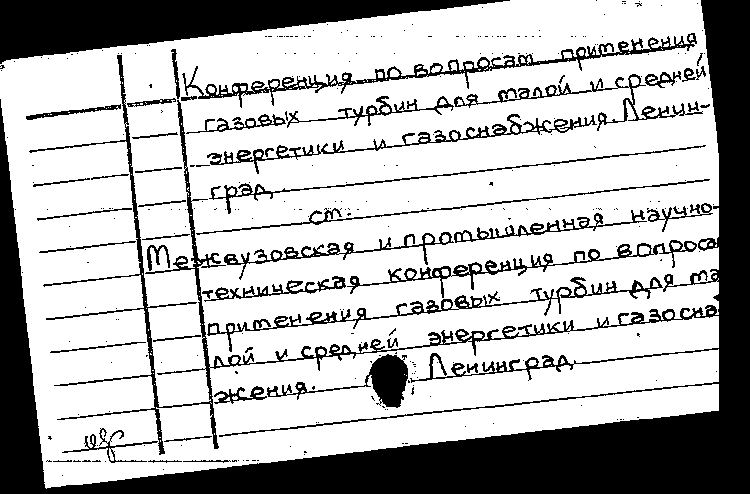 Конференция по вопросам применения
газовых турбин для малой и средней
энергетики и газоснабжения. Ленин-
град.
ст.
Межвузовская и промышленная научно-
техническая конференция по вопроса
применения газовых турбин для ма
лой и средней энергетики и газосна
жения. Ленинград.